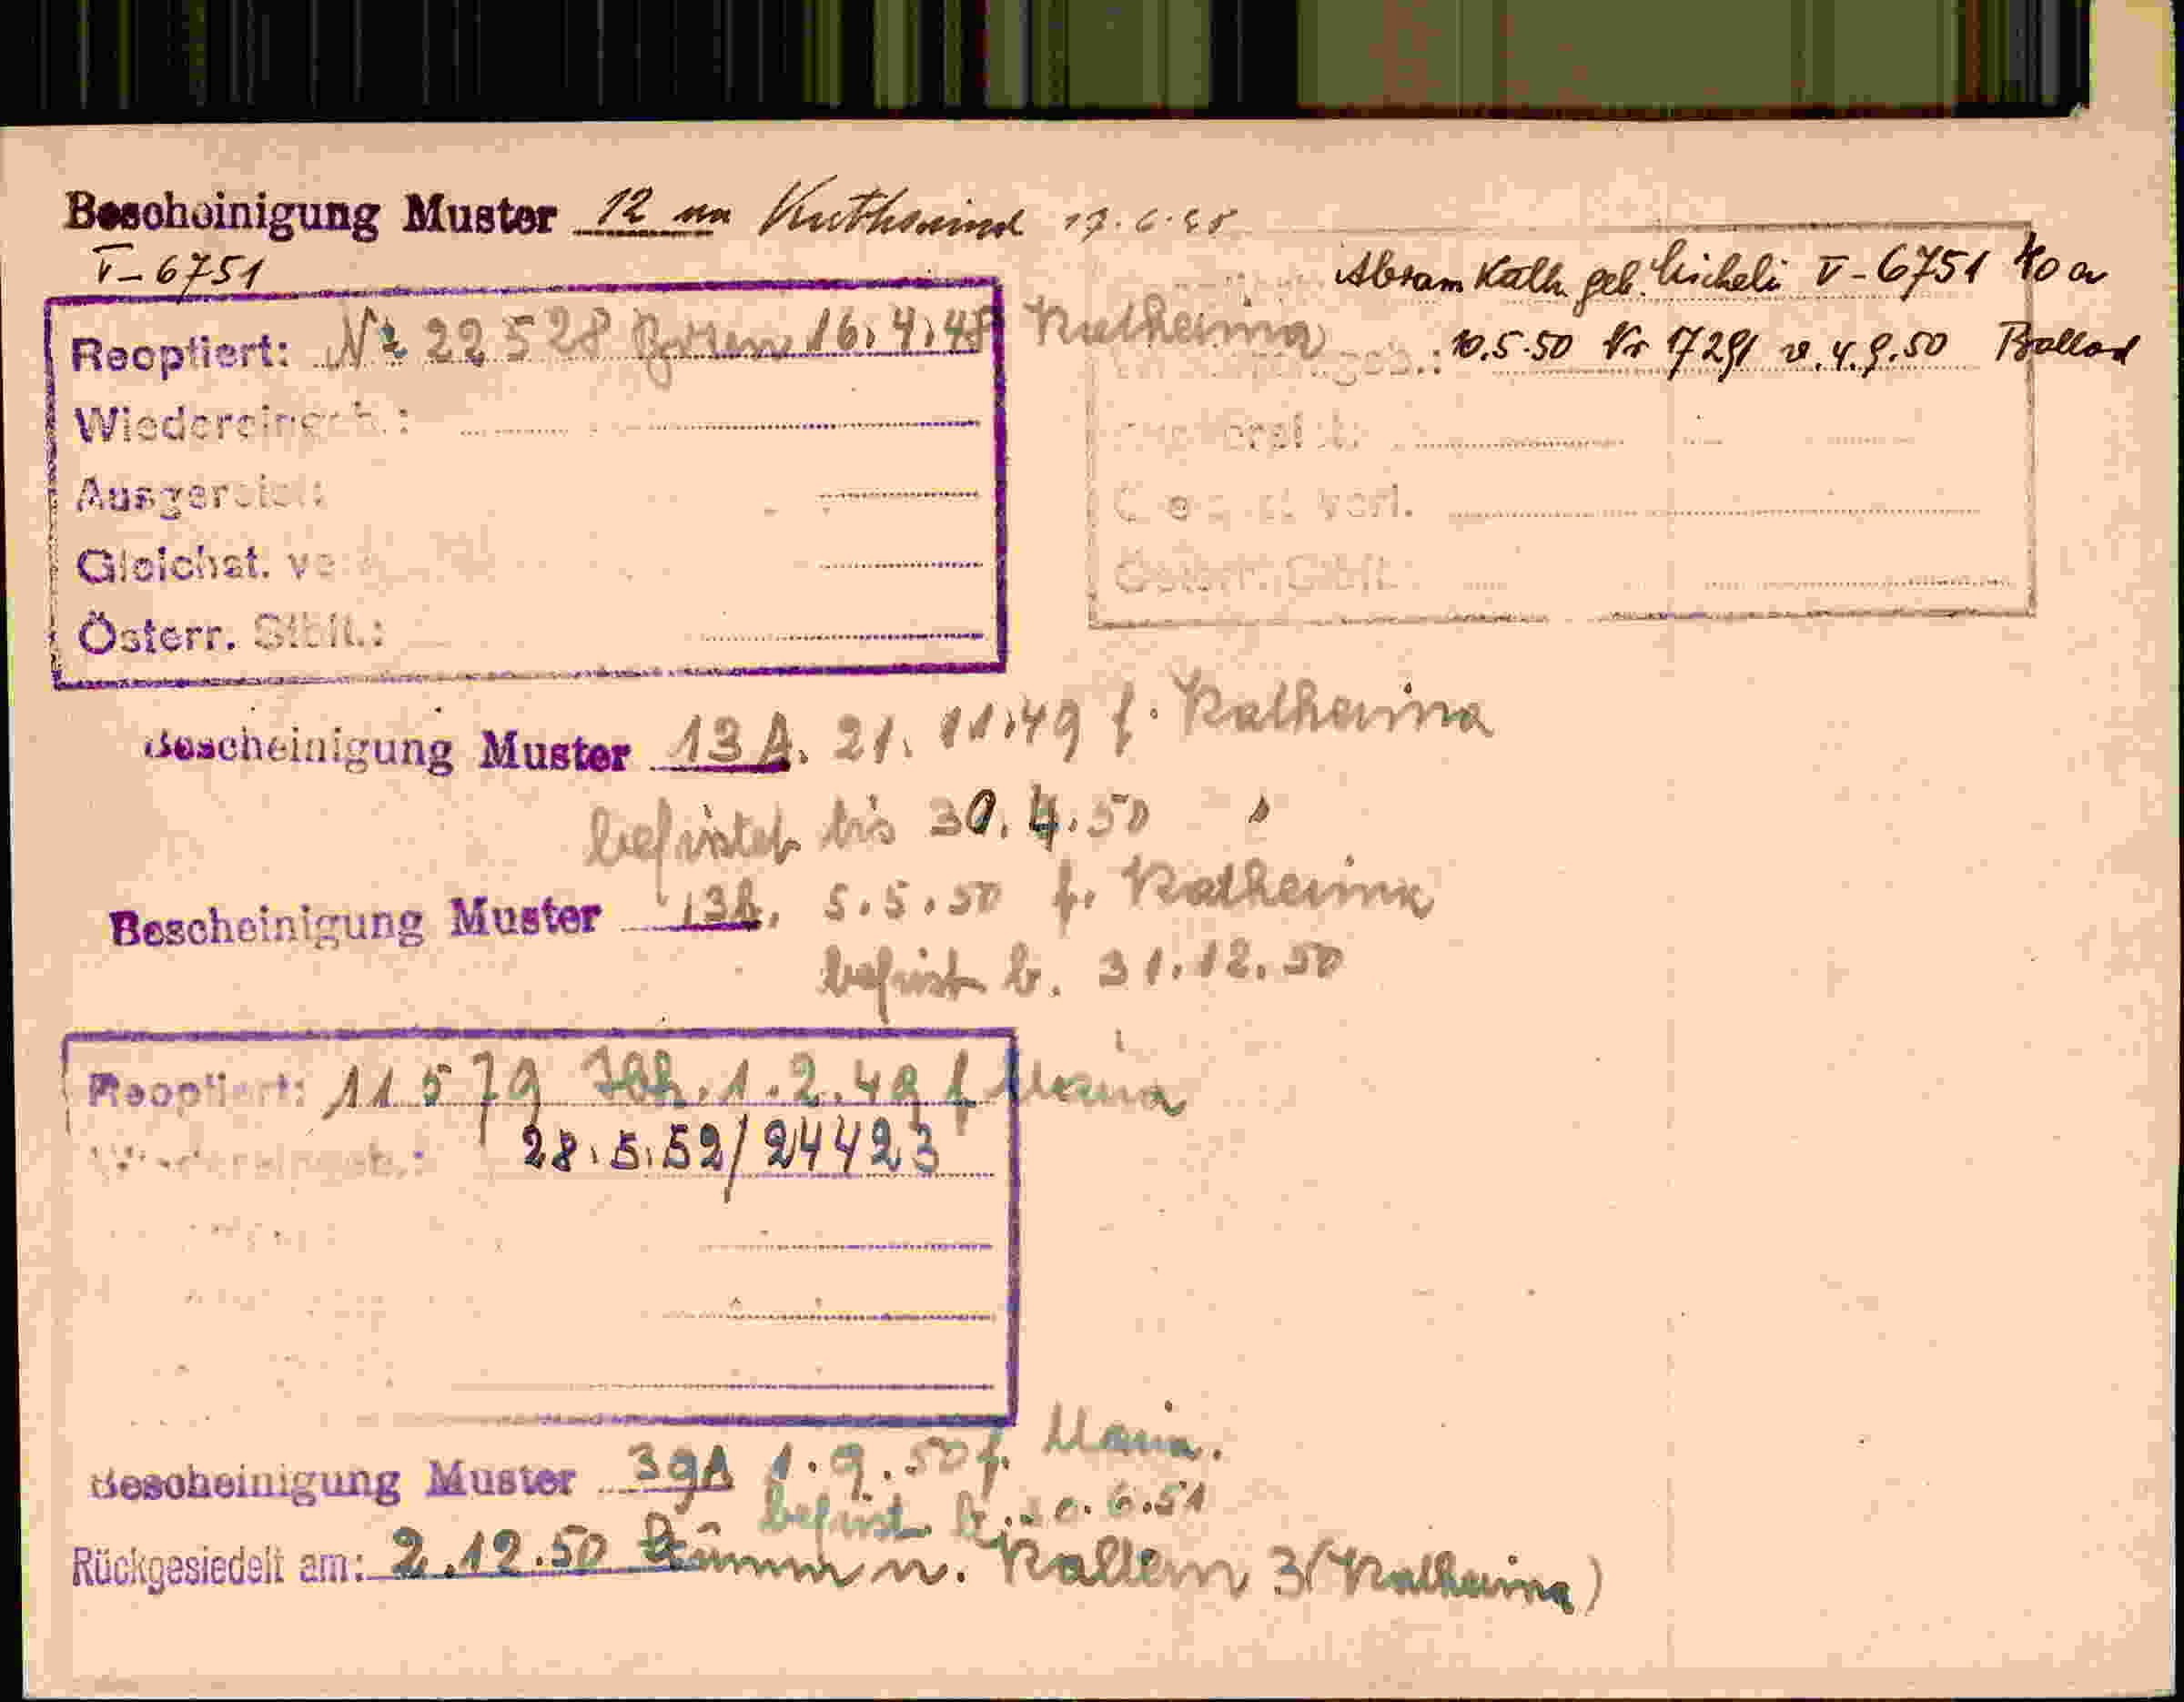 Bescheinigung Muster 12 an 17.6.48
V-6751
Abram Kath. geb. Micheli V-6751 40 a
Reoptiert: Nr 22528 Bozen 16.4.48 Katharina
10.5.50 Nr 17291 v. 4.9.50
Wiedereingeb.:
Ausgereist:
Gleichst. verl.
Österr. Stbft.:
Österr. Stbft.
Bescheinigung Muster 13A. 21.11.49 f. Katharina
befristet bis 30.4.50
Bescheinigung Muster 13A. 5.5.50 f. Katharina
befrist b. 31.12.50
Reoptiert: 11579 Ibk. 1.2.49 f Maria
Wiedereingeb.: 28.5.52/24423
Bescheinigung Muster 39A 1.9.50 f. Maria.
befrist. b. 6.51
Rückgesiedelt am: 2.12.50 n. Kaltern 3 (Katharina)